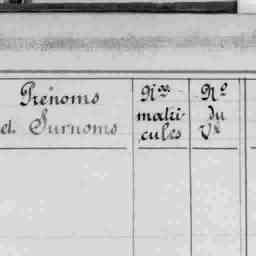 Prénoms
et Surnoms
Nos
matri-
cules
No
du
Vte